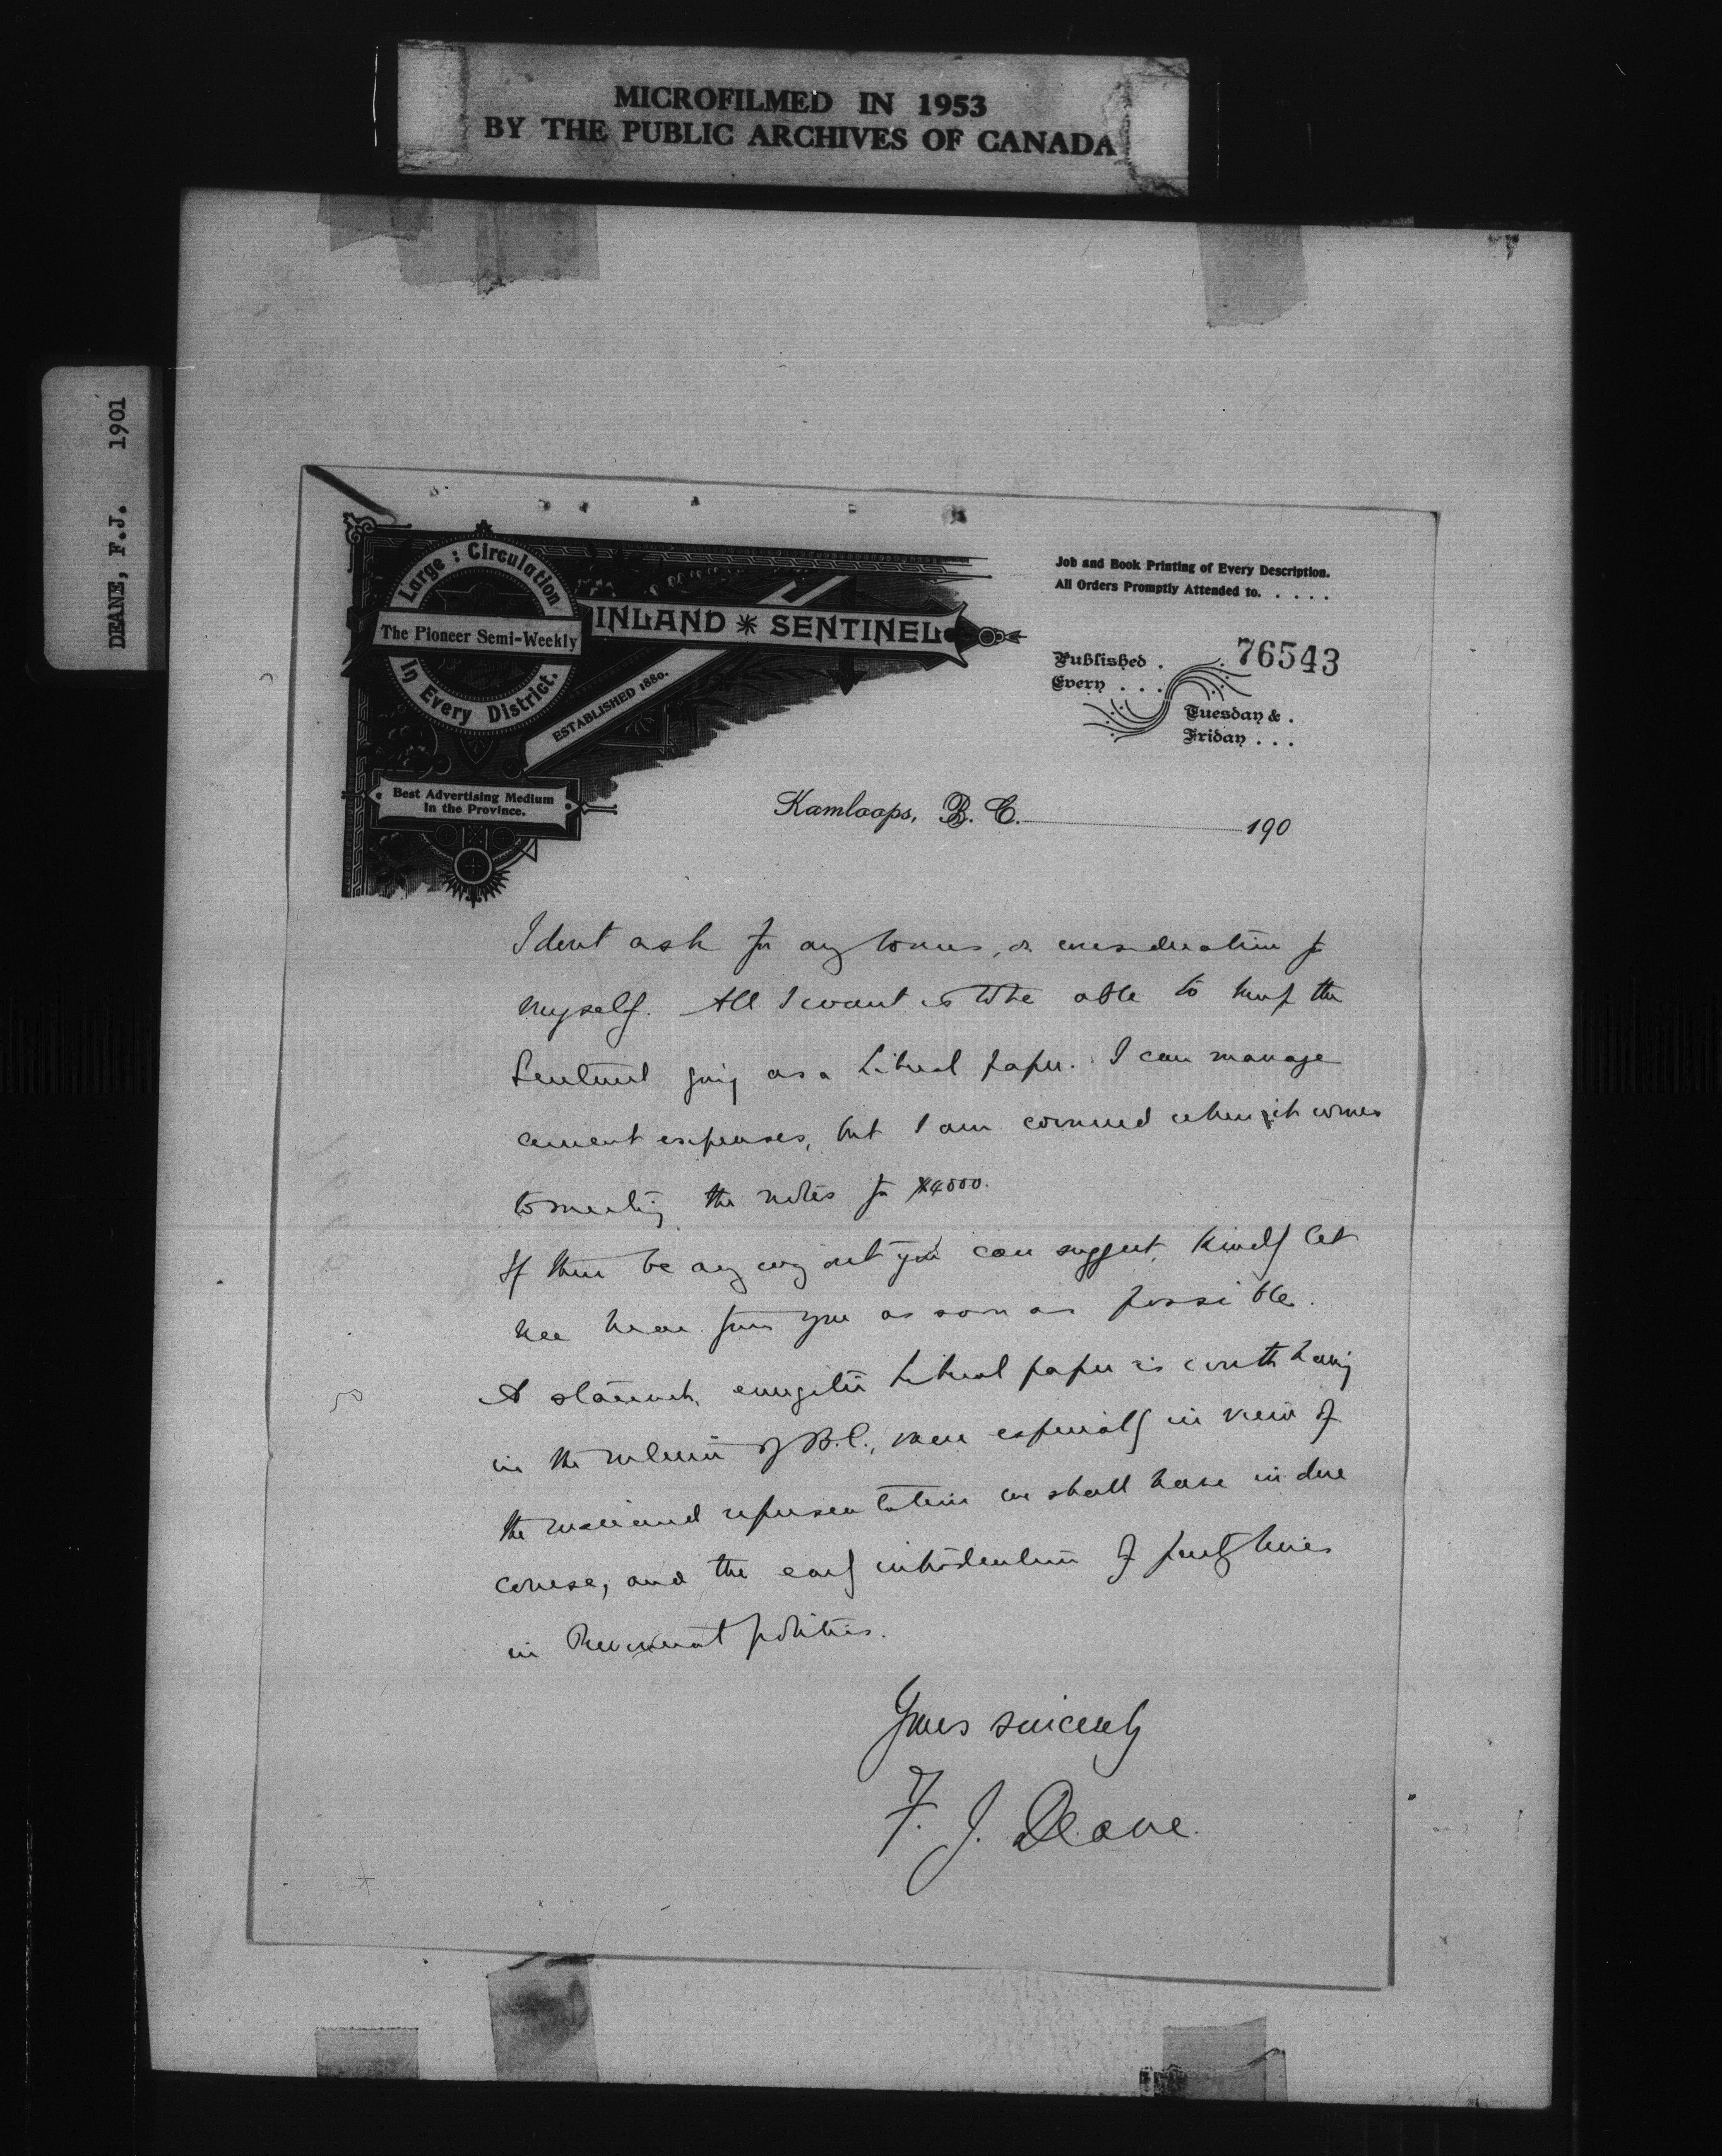 MICROFILMED IN 1953
BY THE PUBLIC ARCHIVES OF CANADA
DEANE, F.J. 1901
Large : Circulation
The Pioneer Semi-Weekly
In Every District.
INLAND SENTINEL
ESTABLISHED 1880.
Best Advertising Medium
in the Province.
Job and Book Printing of Every Description.
All Orders Promptly Attended to. . . . .
76543
Published .
Every . . .
Tuesday & .
Friday . . .
Kamloops, B. C. 190
I don't ask for any bonus, or consideration for
myself. All I want is to be able to keep the
Sentinel going as a Liberal paper. I can manage
current expenses, but I am cornered when it comes
to meeting the notes for $4000.
If there be any way out you can suggest, kindly let
me hear from you as soon as possible.
A staunch, energetic Liberal paper is worth having
in the interior of B.C., more especially in view of
the increased representation we shall have in due
course, and the early introduction of party lines
in Provincial politics.
Yours sincerely
F. J. Deane.